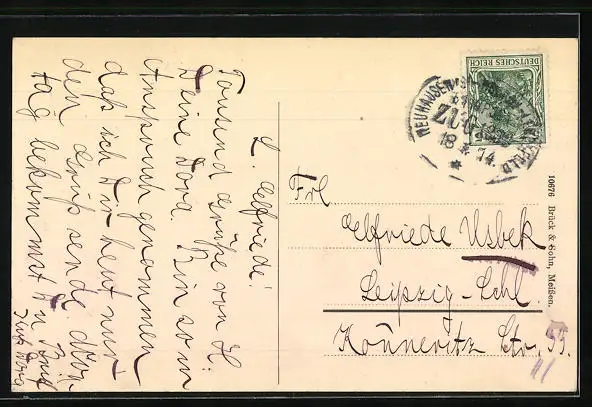 L. Elfriede!
Tausend Grüße von H.
Deine Dora. Bin so in
Anspruch genommen
daß ich Dir heut nur
den Gruß sende. Don.
tag bekommst Du Brief
Gruß Dora.
DEUTSCHES REICH
NEUHAUSEN
ZUG
18 14.
Frl
Elfriede Usbek
Leipzig-Schl.
Könneritz Str. 55.
II
10676 Brück & Sohn, Meißen.